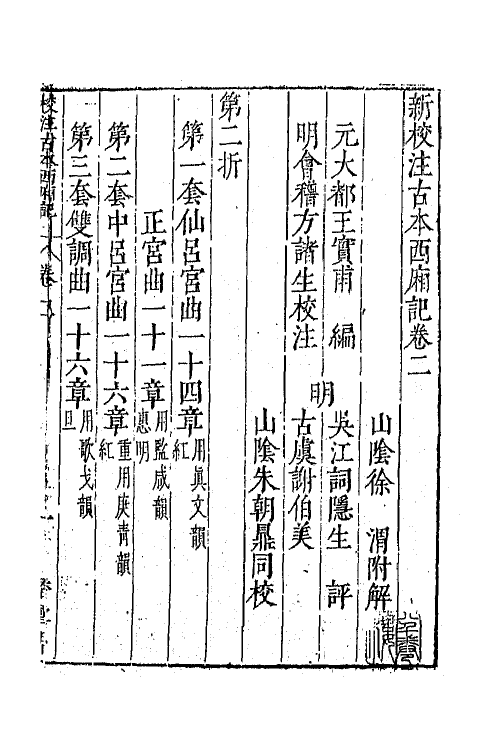 新校注古本西廂記卷二
山陰徐渭附解
元大都王實甫編
吳江詞隱生評
明會稽方諸生校注
明
古虞謝伯美
山陰朱朝鼎同校
第二折
第一套仙呂宮曲一十四章用眞文韻紅
正宮曲一十一章用監咸韻惠明
第二套中呂宮曲一十六章重用庚青韻紅
第三套雙調曲一十六章用歌戈韻旦
校注古本西廂記卷二